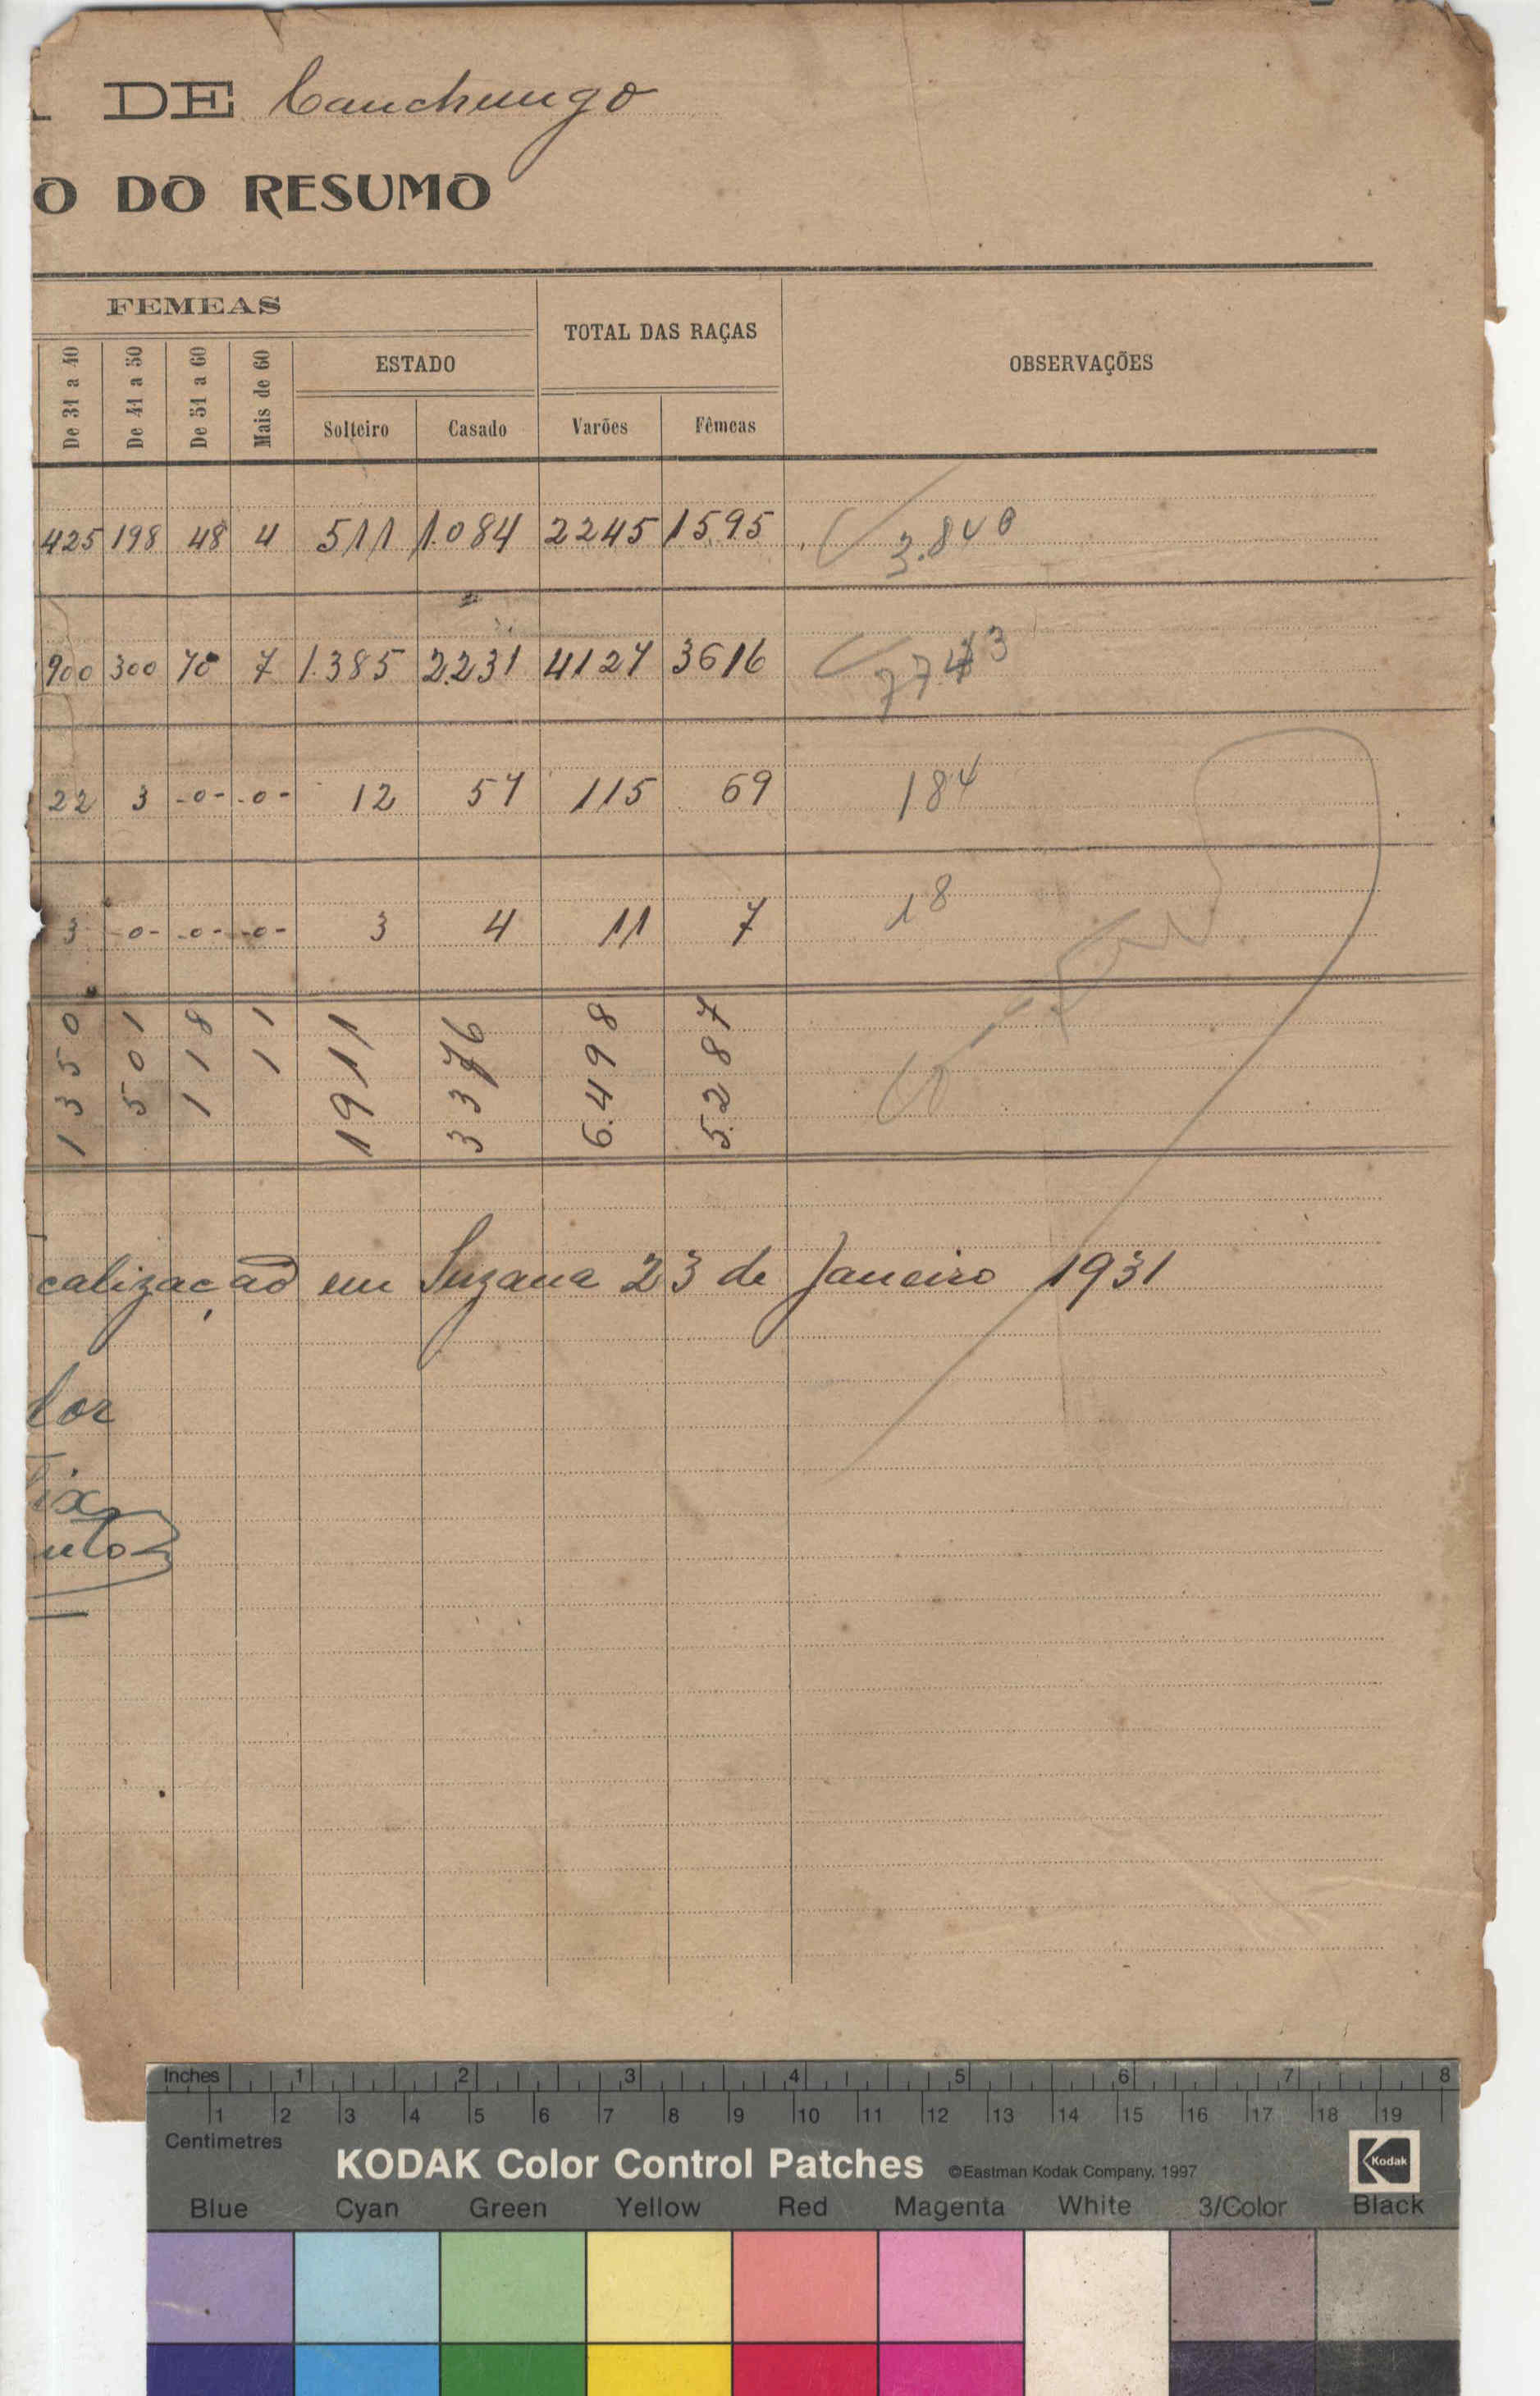 DE Canchungo
O DO RESUMO
FEMEAS
TOTAL DAS RAÇAS
OBSERVAÇÕES
De 31 a 40 De 41 a 50 De 51 a 60 Mais de 60 ESTADO
Solteiro Casado Varões Fêmeas
425 198 48 4 511 1.084 2245 1595 3.840
900 300 70 7 1.385 2.231 4127 3616 7743
22 3 -0- -0- 12 57 115 69 184
3 -0- -0- -0- 3 4 11 7 18
1350 501 118 11 1911 3376 6.498 5.287
calização em Suzana 23 de Janeiro 1931
dor
ix
nto
Inches 1 2 3 4 5 6 7 8
1 2 3 4 5 6 7 8 9 10 11 12 13 14 15 16 17 18 19
Centimetres
KODAK Color Control Patches ©Eastman Kodak Company, 1997 Kodak
Blue Cyan Green Yellow Red Magenta White 3/Color Black